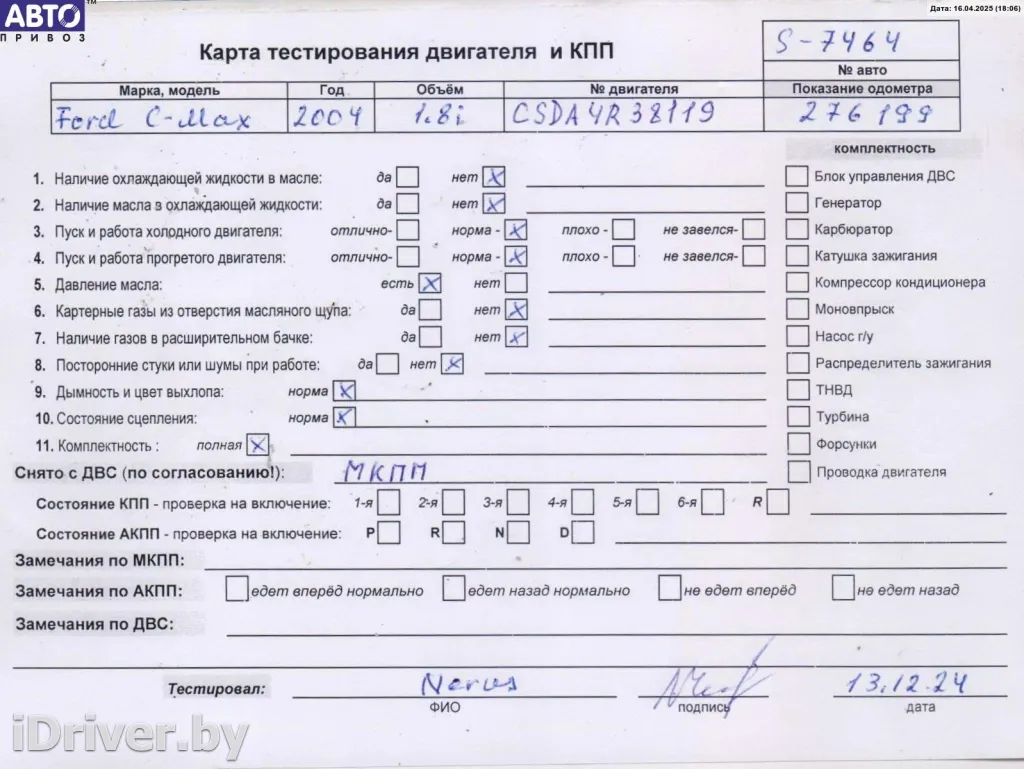 АВТО
ПРИВОЗ
™
Дата: 16.04.2025 (18:06)
Карта тестирования двигателя и КПП
S-7464
№ авто
Марка, модель Год Объём № двигателя Показание одометра
Ford C-Max 2004 1.8i CSDA4R38119 276199
комплектность
1. Наличие охлаждающей жидкости в масле: да нет X
2. Наличие масла в охлаждающей жидкости: да нет X
3. Пуск и работа холодного двигателя: отлично- норма - X плохо - не завелся-
4. Пуск и работа прогретого двигателя: отлично- норма - X плохо - не завелся-
5. Давление масла: есть X нет
6. Картерные газы из отверстия масляного щупа: да нет X
7. Наличие газов в расширительном бачке: да нет X
8. Посторонние стуки или шумы при работе: да нет X
9. Дымность и цвет выхлопа: норма X
10. Состояние сцепления: норма X
11. Комплектность : полная X
Блок управления ДВС
Генератор
Карбюратор
Катушка зажигания
Компрессор кондиционера
Моновпрыск
Насос г/у
Распределитель зажигания
ТНВД
Турбина
Форсунки
Проводка двигателя
Снято с ДВС (по согласованию!): МКПП
Состояние КПП - проверка на включение: 1-я 2-я 3-я 4-я 5-я 6-я R
Состояние АКПП - проверка на включение: P R N D
Замечания по МКПП:
Замечания по АКПП: едет вперёд нормально едет назад нормально не едет вперёд не едет назад
Замечания по ДВС:
Тестировал: 13.12.24
ФИО подпись дата
iDriver.by